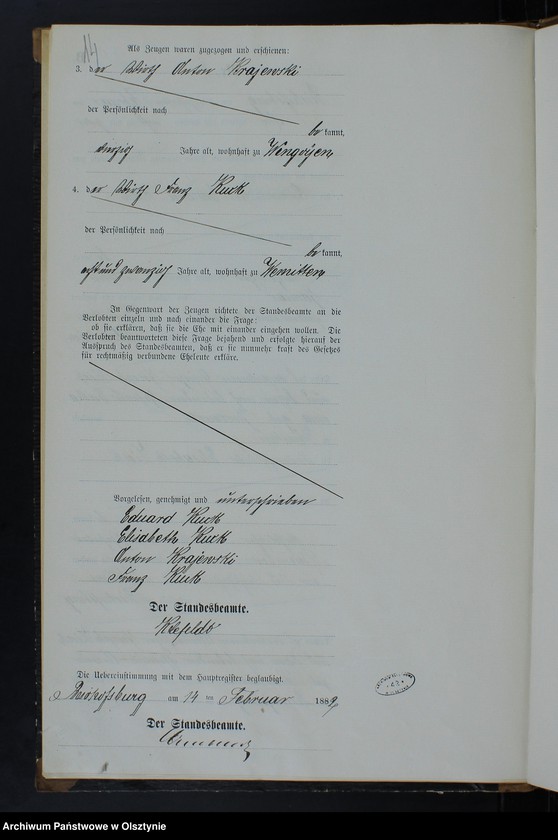 14
Als Zeugen waren zugezogen und erschienen:
3. der Wirth Anton Krajewski
der Persönlichkeit nach
bekannt,
vierzig Jahre alt, wohnhaft zu Wengoyen
4. der Wirth Franz Kuck
der Persönlichkeit nach
bekannt,
acht und zwanzig Jahre alt, wohnhaft zu Wemitten
In Gegenwart der Zeugen richtete der Standesbeamte an die
Verlobten einzeln und nach einander die Frage:
ob sie erklären, daß sie die Ehe mit einander eingehen wollen. Die
Verlobten beantworteten diese Frage bejahend und erfolgte hierauf der
Ausspruch des Standesbeamten, daß er sie nunmehr kraft des Gesetzes
für rechtmäßig verbundene Eheleute erkläre.
Vorgelesen, genehmigt und unterschrieben
Eduard Kuck
Elisabeth Kuck
Anton Krajewski
Franz Kuck
Der Standesbeamte.
Kleefeldt
Die Uebereinstimmung mit dem Hauptregister beglaubigt.
Bischofsburg am 14 ten Februar 1889
Der Standesbeamte.
Archiwum Państwowe w Olsztynie